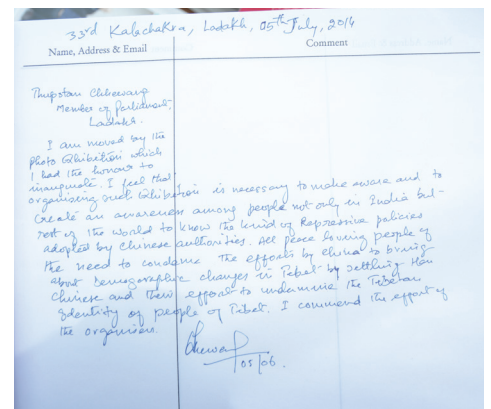 33rd Kalachakra, Ladakh, 05th July, 2014
Name, Address & Email
Comment
Thupstan Chhewang
Member of Parliament,
Ladakh.
I am moved by the
photo Exhibition which
I had the honour to
inaugurate. I feel that
organising such Exhibition is necessary to make aware and to
create an awareness among people not only in India but
rest of the world to know the kind of Repressive policies
adopted by Chinese authorities. All peace loving people of
the need to condemn the efforts by China to bring
about Demographic changes in Tibet by settling Han
Chinese and their efforts to undermine the Tibetan
Identity of people of Tibet. I commend the effort of
the organisers.
05/06.